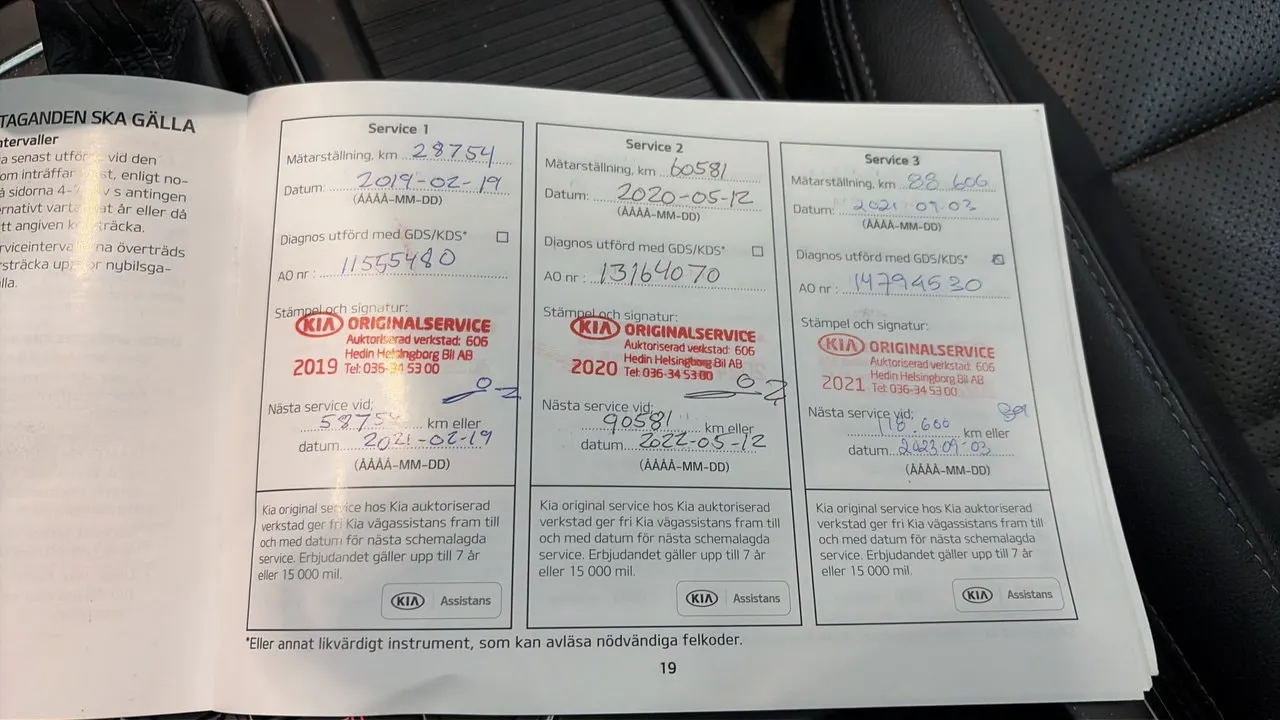 TAGANDEN SKA GÄLLA
ntervaller
a senast utför vid den
om inträffar st, enligt no-
å sidorna 4- v s antingen
ernativt vart at år eller då
tt angiven k sträcka.
rviceinterva na överträds
rsträcka upp or nybilsga-
lla.
Service 1
Mätarställning, km 28754
Datum: 2019-02-19
(ÅÅÅÅ-MM-DD)
Diagnos utförd med GDS/KDS*
AO nr : 11555480
Stämpel och signatur:
KIA ORIGINALSERVICE
Auktoriserad verkstad: 606
Hedin Helsingborg Bil AB
2019 Tel: 036-34 53 00
Nästa service vid:
58754 km eller
datum 2021-02-19
(ÅÅÅÅ-MM-DD)
Kia original service hos Kia auktoriserad
verkstad ger fri Kia vägassistans fram till
och med datum för nästa schemalagda
service. Erbjudandet gäller upp till 7 år
eller 15 000 mil.
KIA Assistans
Service 2
Mätarställning, km 60581
Datum: 2020-05-12
(ÅÅÅÅ-MM-DD)
Diagnos utförd med GDS/KDS*
AO nr : 13164070
Stämpel och signatur:
KIA ORIGINALSERVICE
Auktoriserad verkstad: 606
Hedin Helsingborg Bil AB
2020 Tel: 036-34 53 00
Nästa service vid:
90581 km eller
datum 2022-05-12
(ÅÅÅÅ-MM-DD)
Kia original service hos Kia auktoriserad
verkstad ger fri Kia vägassistans fram till
och med datum för nästa schemalagda
service. Erbjudandet gäller upp till 7 år
eller 15 000 mil.
KIA Assistans
Service 3
Mätarställning, km 88 606
Datum: 2021 09-03
(ÅÅÅÅ-MM-DD)
Diagnos utförd med GDS/KDS*
AO nr : 14794530
Stämpel och signatur:
KIA ORIGINALSERVICE
Auktoriserad verkstad: 606
Hedin Helsingborg Bil AB
2021 Tel: 036-34 53 00
Nästa service vid:
118.600 km eller
datum 2023 09-03
(ÅÅÅÅ-MM-DD)
Kia original service hos Kia auktoriserad
verkstad ger fri Kia vägassistans fram till
och med datum för nästa schemalagda
service. Erbjudandet gäller upp till 7 år
eller 15 000 mil.
KIA Assistans
*Eller annat likvärdigt instrument, som kan avläsa nödvändiga felkoder.
19